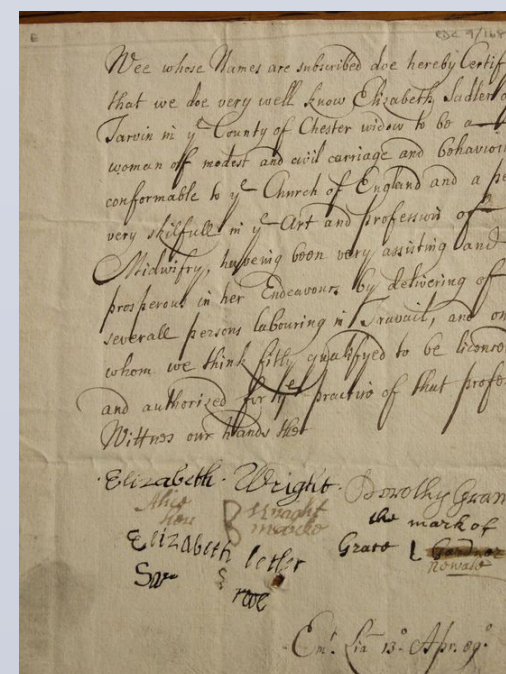 E
EDC 9/168
Wee whose Names are subscribed doe hereby Certif
that we doe very well know Elizabeth Sadler o
Tarvin in yᵉ County of Chester widow to be a
woman off modest and civil carriage and behaviou
conformable to yᵉ Church of England and a pe
very skilfull in yᵉ Art and profession of
Midwifry, haveing been very assisting and
prosperous in her Endeavours by delivering of
severall persons labouring in Travail, and on
whom we think fitly qualifyed to be licence
and authorised for yᵉ practice of that profes
Wittnes our hands
Elizabeth Wright Dorothy Gran
Alice the mark of
B
Elizabeth Grace L Gardner
S
Emᵗ. Liᵃ 13º Apr. 89º.